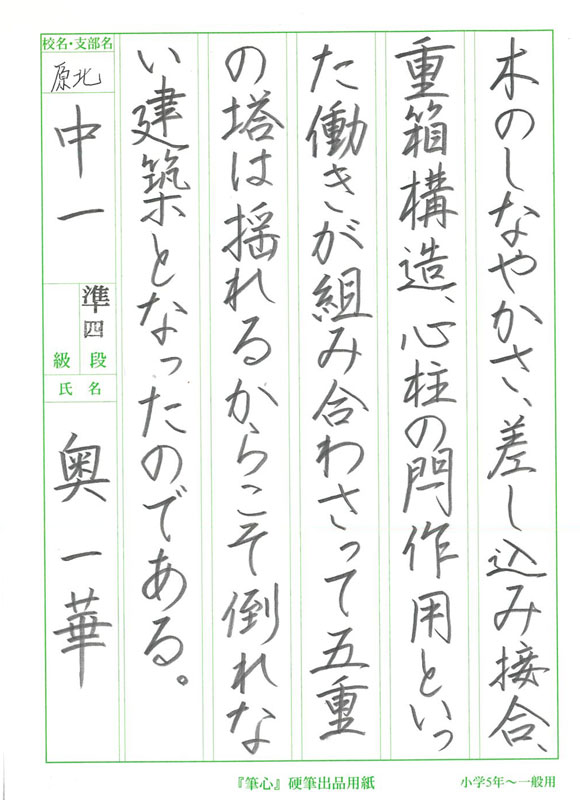 木のしなやかさ、差し込み接合、
重箱構造、心柱の閂作用といっ
た働きが組み合わさって五重
の塔は揺れるからこそ倒れな
い建築となったのである。
校名・支部名
原北
中一
準四
段
級
氏名
奥一華
『筆心』硬筆出品用紙
小学5年〜一般用